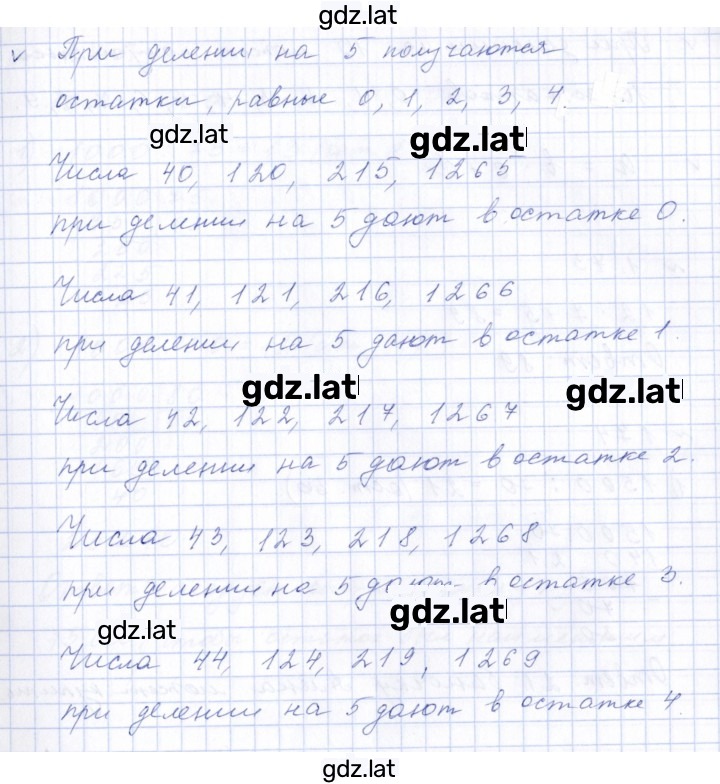 gdz.lat
v При делении на 5 получаются
остатки, равные 0, 1, 2, 3, 4.
gdz.lat gdz.lat
Числа 40, 120, 215, 1265
при делении на 5 дают в остатке 0.
Числа 41, 121, 216, 1266
при делении на 5 дают в остатке 1.
gdz.lat gdz.lat
Числа 42, 122, 217, 1267
при делении на 5 дают в остатке 2.
Числа 43, 123, 218, 1268
при делении на 5 дают в остатке 3.
gdz.lat gdz.lat
Числа 44, 124, 219, 1269
при делении на 5 дают в остатке 4.
gdz.lat